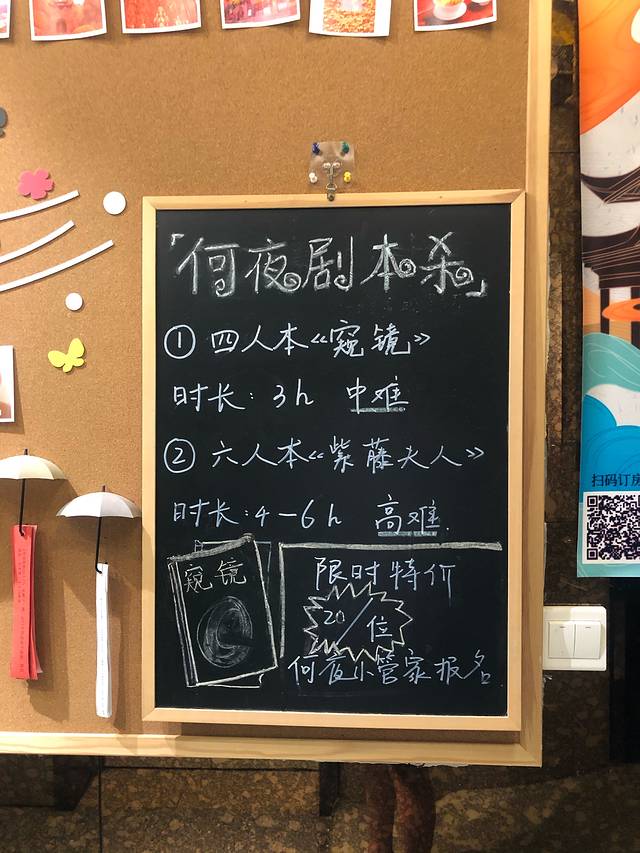 「何夜剧本杀」
① 四人本《窥镜》
时长：3h 中难
② 六人本《紫藤夫人》
时长：4-6h 高难.
窥镜
限时特价
20/位
何夜小管家报名
扫码订房